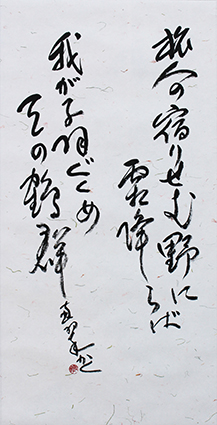 旅人の宿りせむ野に
霜降らば
我が子羽ぐくめ
天の鶴群